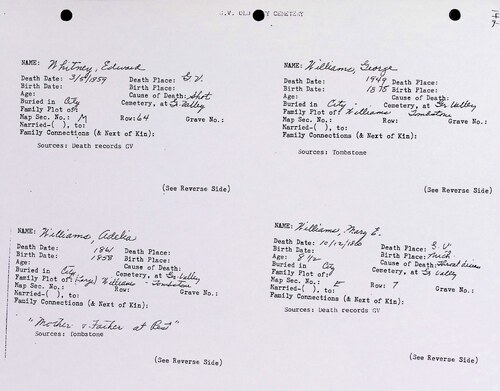 G.V. OLD CITY CEMETERY
NAME: Whitney, Edward
Death Date: 3/5/1859 Death Place: G.V.
Birth Date: Birth Place:
Age: Cause of Death: Shot
Buried in City Cemetery, at Gr. Valley
Family Plot of:
Map Sec. No.: M Row: 64 Grave No.:
Married-( ), to:
Family Connections (& Next of Kin):
Sources: Death records GV
(See Reverse Side)
NAME: Williams, George
Death Date: 1949 Death Place:
Birth Date: 1875 Birth Place:
Age: Cause of Death:
Buried in City Cemetery, at Gr. Valley
Family Plot of: Williams Tombstone
Map Sec. No.: Row: Grave No.:
Married-( ), to:
Family Connections (& Next of Kin):
Sources: Tombstone
(See Reverse Side)
NAME: Williams, Adelia
Death Date: Death Place:
Birth Date: 1858 Birth Place:
Age: Cause of Death:
Buried in City Cemetery, at Gr. Valley
Family Plot of: (Large) Williams - Tombstone
Map Sec. No.: Row: Grave No.:
Married-( ), to:
Family Connections (& Next of Kin):
"Mother & Father at Rest"
Sources: Tombstone
(See Reverse Side)
NAME: Williams, Mary E.
Death Date: 10/12/ Death Place: G.V
Birth Date: Birth Place: Mich
Age: 8 1/2 Cause of Death:
Buried in City Cemetery, at Gr Valley
Family Plot of:
Map Sec. No.: E Row: 7 Grave No.:
Married-( ), to:
Family Connections (& Next of Kin):
Sources: Death records GV
(See Reverse Side)